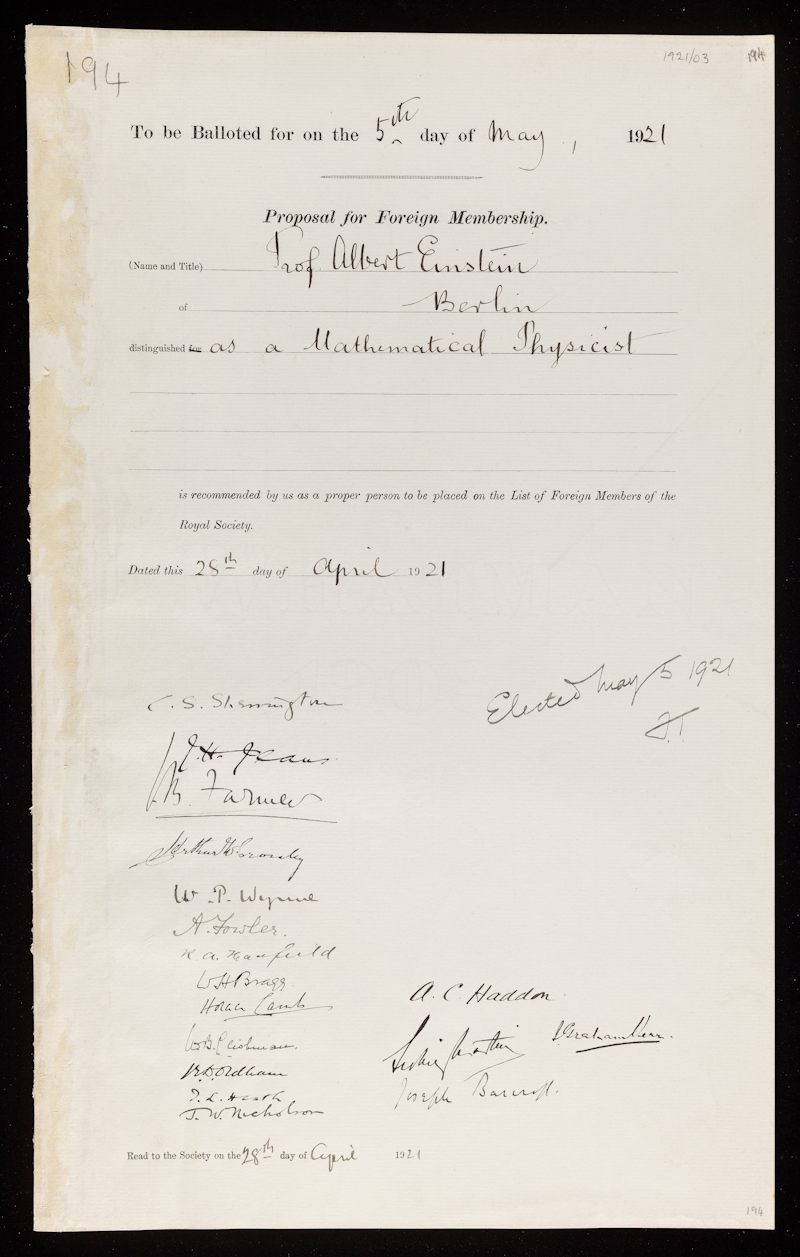 194
1921/03 194
To be Balloted for on the 5th day of May, 1921
Proposal for Foreign Membership.
(Name and Title) Prof Albert Einstein
of Berlin
distinguished for as a Mathematical Physicist
is recommended by us as a proper person to be placed on the List of Foreign Members of the
Royal Society.
Dated this 28th day of April 1921
Elected May 5 1921
JT
C. S. Sherrington
J. H. Jeans.
J. B. Farmer
Arthur W. Crossley
W. P. Wynne
A. Fowler.
W. H. Bragg
Horace Lamb
W. B. Leishman.
R. D. Oldham
T. L. Heath
J. W. Nicholson
A. C. Haddon
J Graham Kerr.
Sidney Martin
Joseph Barcroft.
Read to the Society on the 28th day of April 1921
194